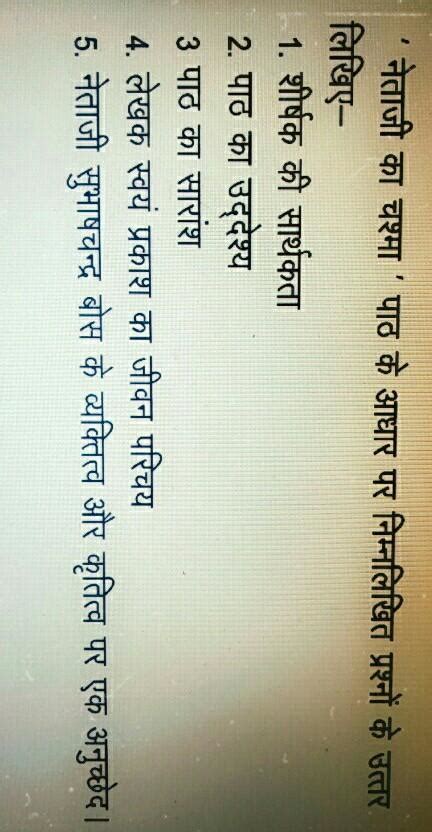 ' नेताजी का चश्मा ' पाठ के आधार पर निम्नलिखित प्रश्नों के उत्तर
लिखिए–
1. शीर्षक की सार्थकता
2. पाठ का उद्देश्य
3 पाठ का सारांश
4. लेखक स्वयं प्रकाश का जीवन परिचय
5. नेताजी सुभाषचन्द्र बोस के व्यक्तित्व और कृतित्व पर एक अनुच्छेद।